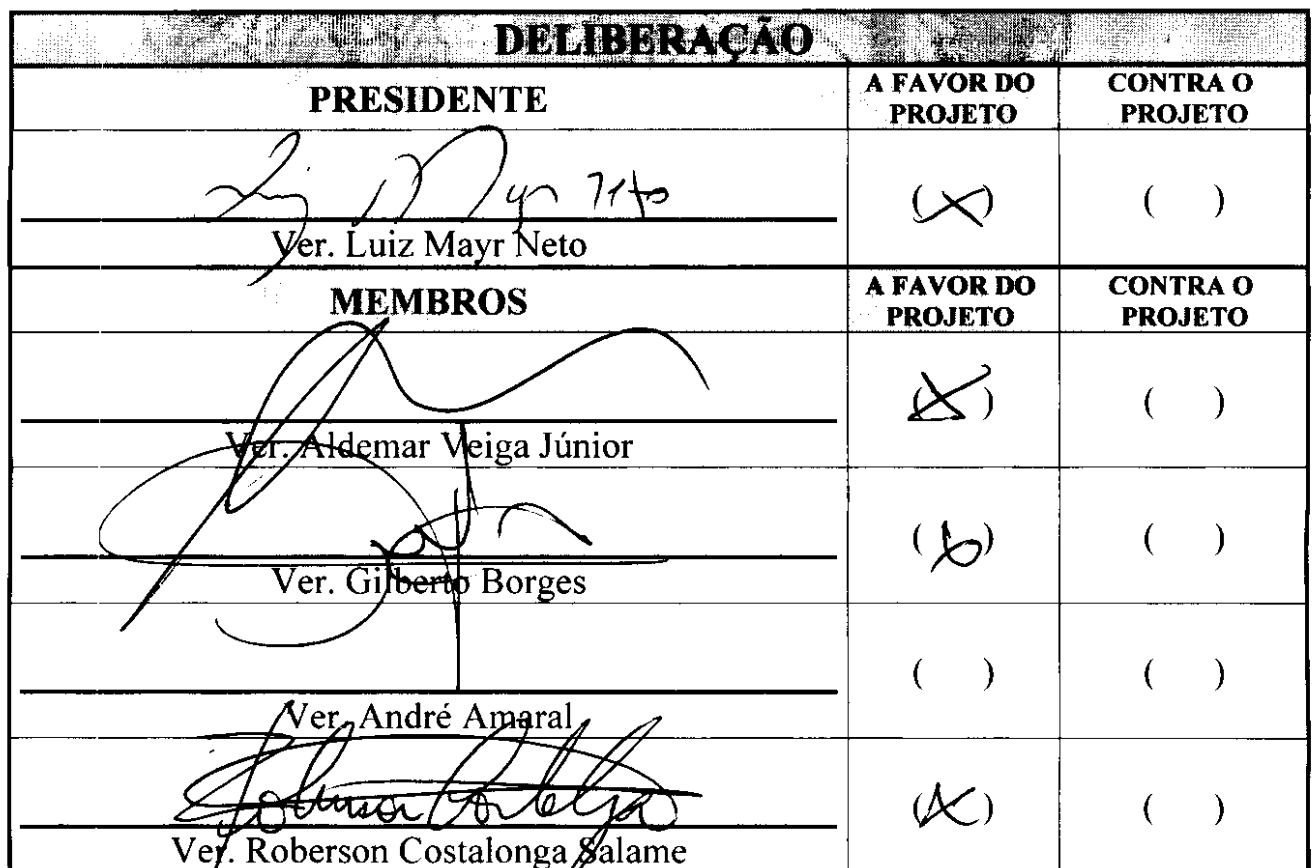 DELIBERAÇÃO
PRESIDENTE A FAVOR DO PROJETO CONTRA O PROJETO
(X) ( )
Ver. Luiz Mayr Neto
MEMBROS A FAVOR DO PROJETO CONTRA O PROJETO
(X) ( )
Ver. Aldemar Veiga Júnior
( ) 
Ver. Gilberto Borges
( ) ( )
Ver. André Amaral
(X) ( )
Ver. Roberson Costalonga Salame